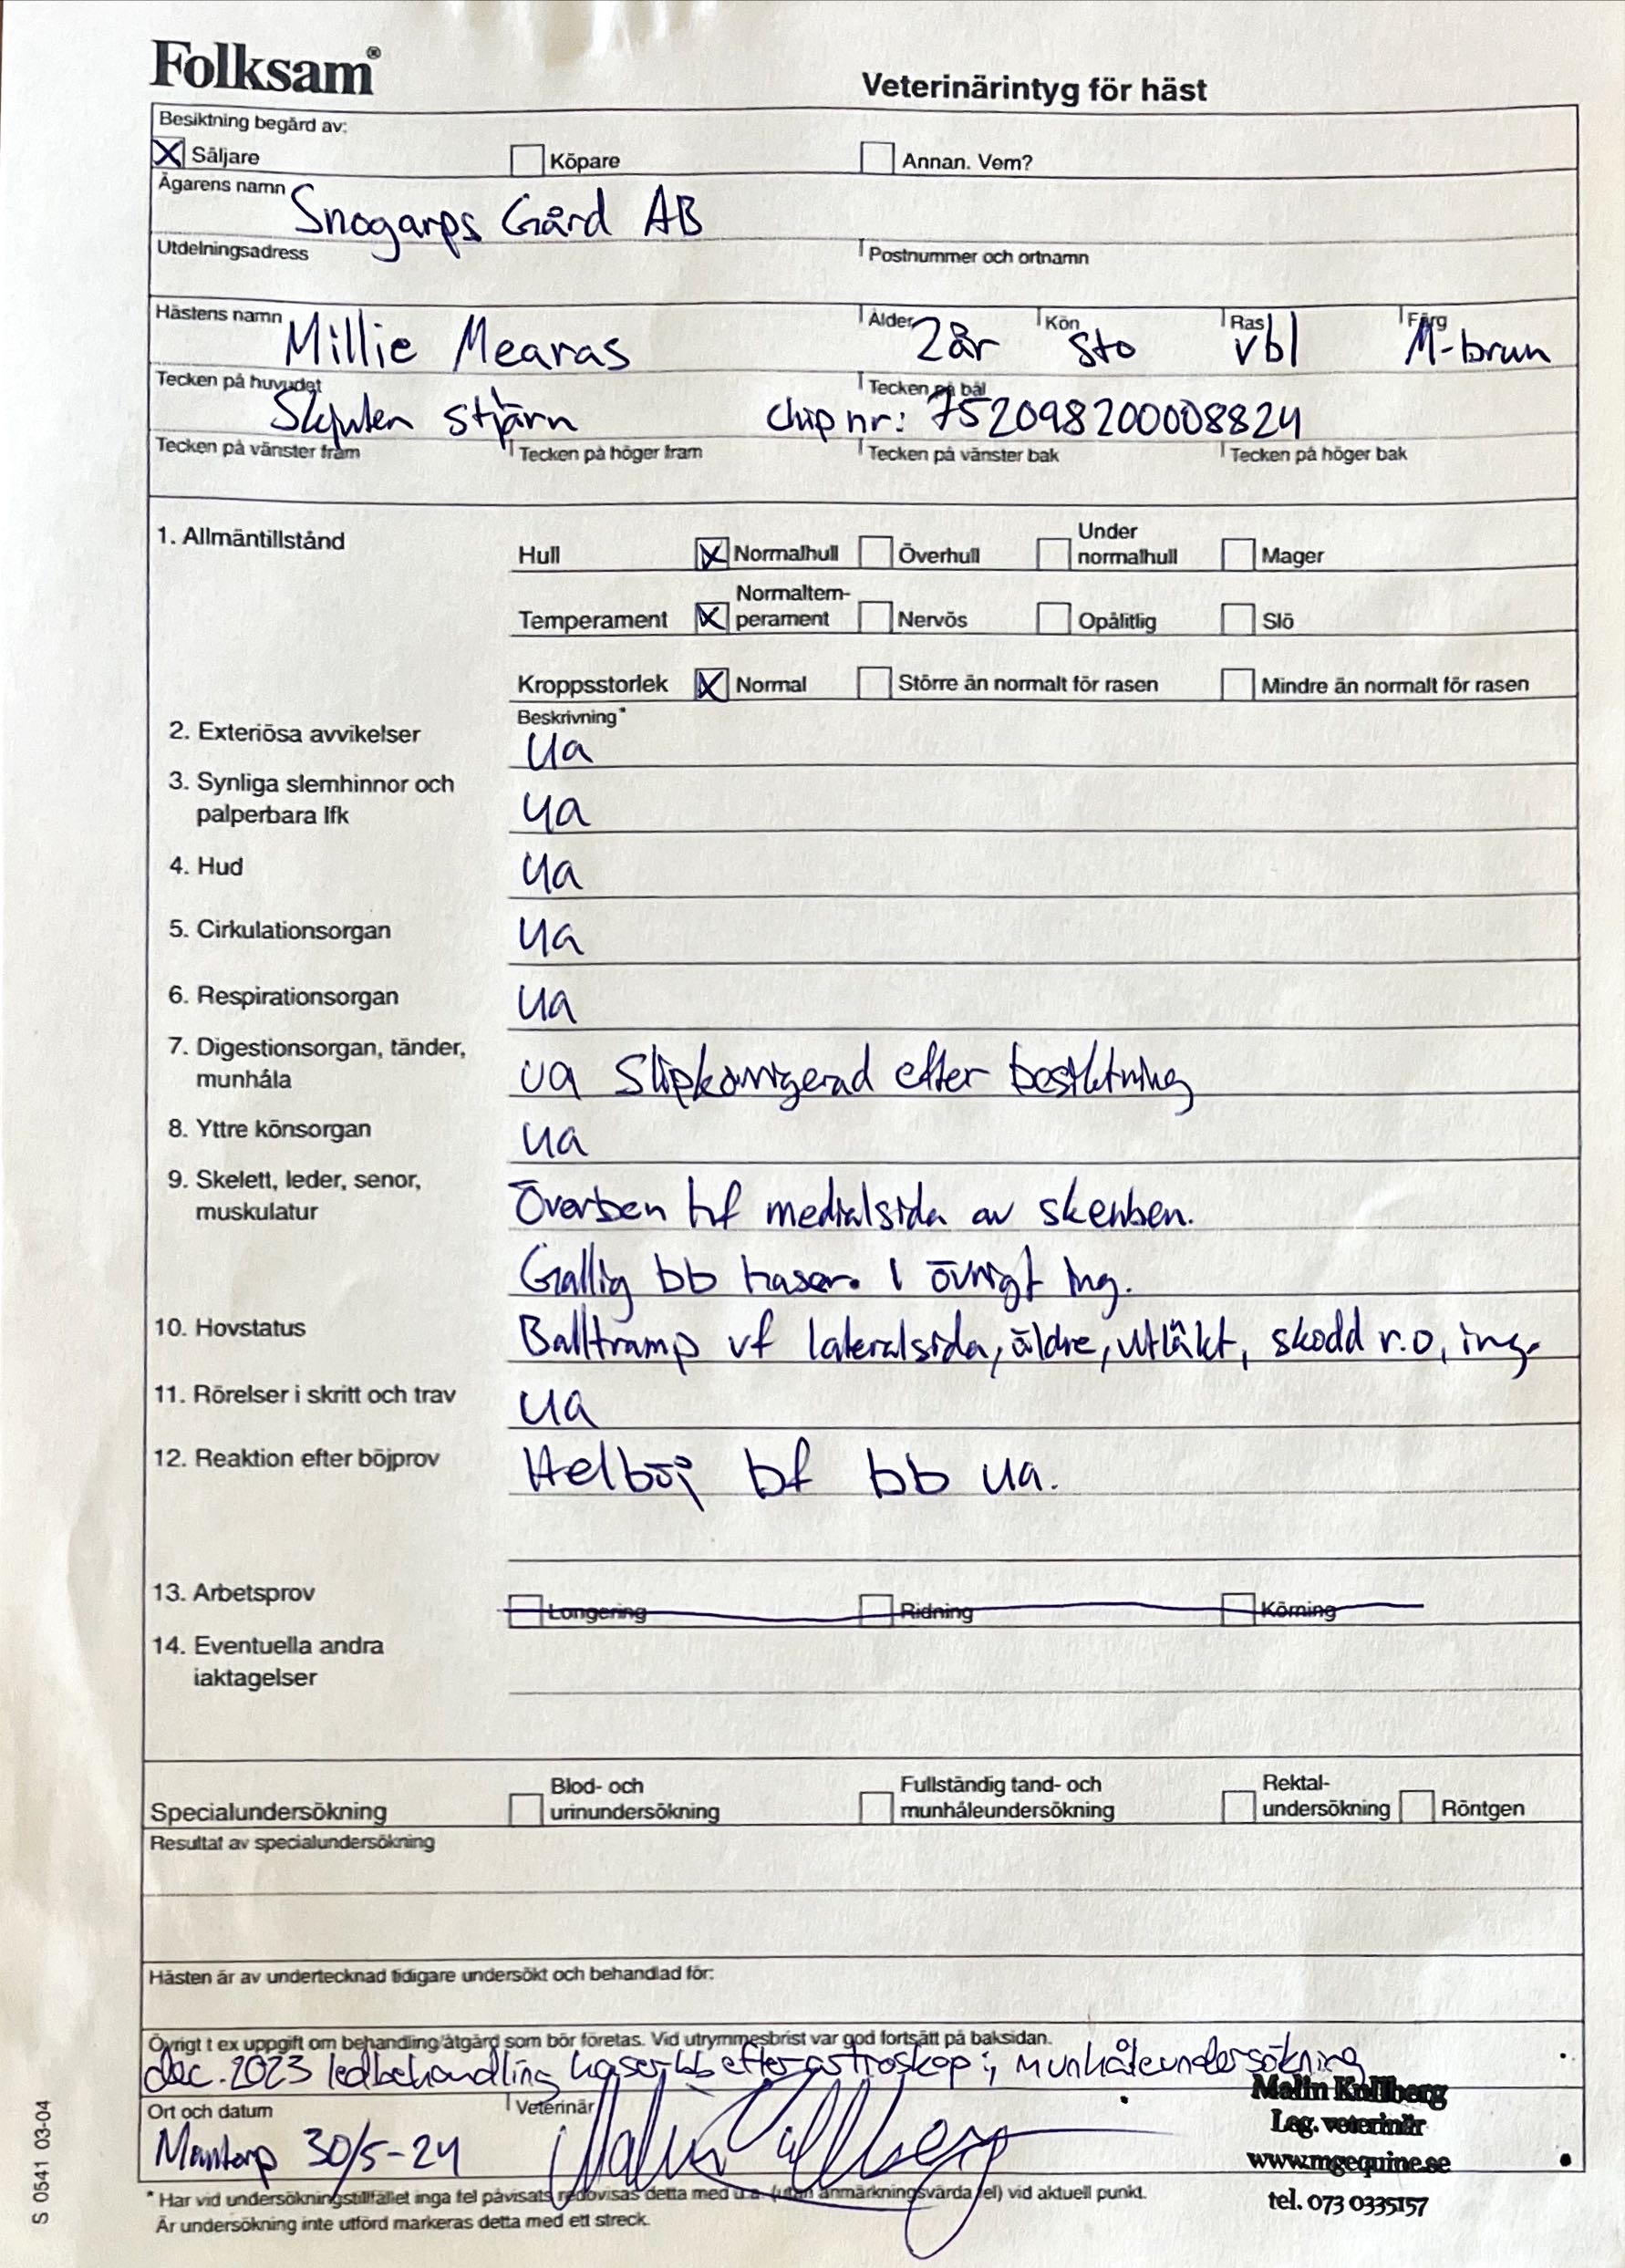 Folksam®
Veterinärintyg för häst
Besiktning begärd av:
Säljare Köpare Annan. Vem?
Ägarens namn Snogarps Gård AB
Utdelningsadress Postnummer och ortnamn
Hästens namn Millie Mearas Ålder 2år Kön sto Ras vbl Färg M-brun
Tecken på huvudet stjärn Tecken på bål chipnr: 752098200008824
Tecken på vänster fram Tecken på höger fram Tecken på vänster bak Tecken på höger bak
1. Allmäntillstånd
Hull Normalhull Överhull Under normalhull Mager
Temperament Normaltem-perament Nervös Opålitlig Slö
Kroppsstorlek Normal Större än normalt för rasen Mindre än normalt för rasen
Beskrivning*
2. Exteriösa avvikelser ua
3. Synliga slemhinnor och
palperbara lfk ua
4. Hud ua
5. Cirkulationsorgan ua
6. Respirationsorgan ua
7. Digestionsorgan, tänder,
munhåla ua Slipkorrigerad efter besiktning
8. Yttre könsorgan ua
9. Skelett, leder, senor,
muskulatur Överben hf medialsida av skenben.
Gallig bb haser. I övrigt ing.
10. Hovstatus Balltramp vf lateralsida, äldre, utläkt, skodd r.o, ing.
11. Rörelser i skritt och trav ua
12. Reaktion efter böjprov Helböj bf bb ua.
13. Arbetsprov Longering Ridning Körning
14. Eventuella andra
iaktagelser
Specialundersökning Blod- och urinundersökning Fullständig tand- och munhåleundersökning Rektal-undersökning Röntgen
Resultat av specialundersökning
Hästen är av undertecknad tidigare undersökt och behandlad för:
Övrigt t ex uppgift om behandling/åtgärd som bör företas. Vid utrymmesbrist var god fortsätt på baksidan.
dec. 2023 ledbehandling haser bb efter artroskopi; munhåleundersökning
Ort och datum Veterinär
Mantorp 30/5-24 Malin Kollberg
Malin Kollberg
Leg. veterinär
www.mgequine.se
tel. 073 0335157
* Har vid undersökningstillfället inga fel påvisats redovisas detta med u.a. (utan anmärkningsvärda fel) vid aktuell punkt.
Är undersökning inte utförd markeras detta med ett streck.
S 0541 03-04